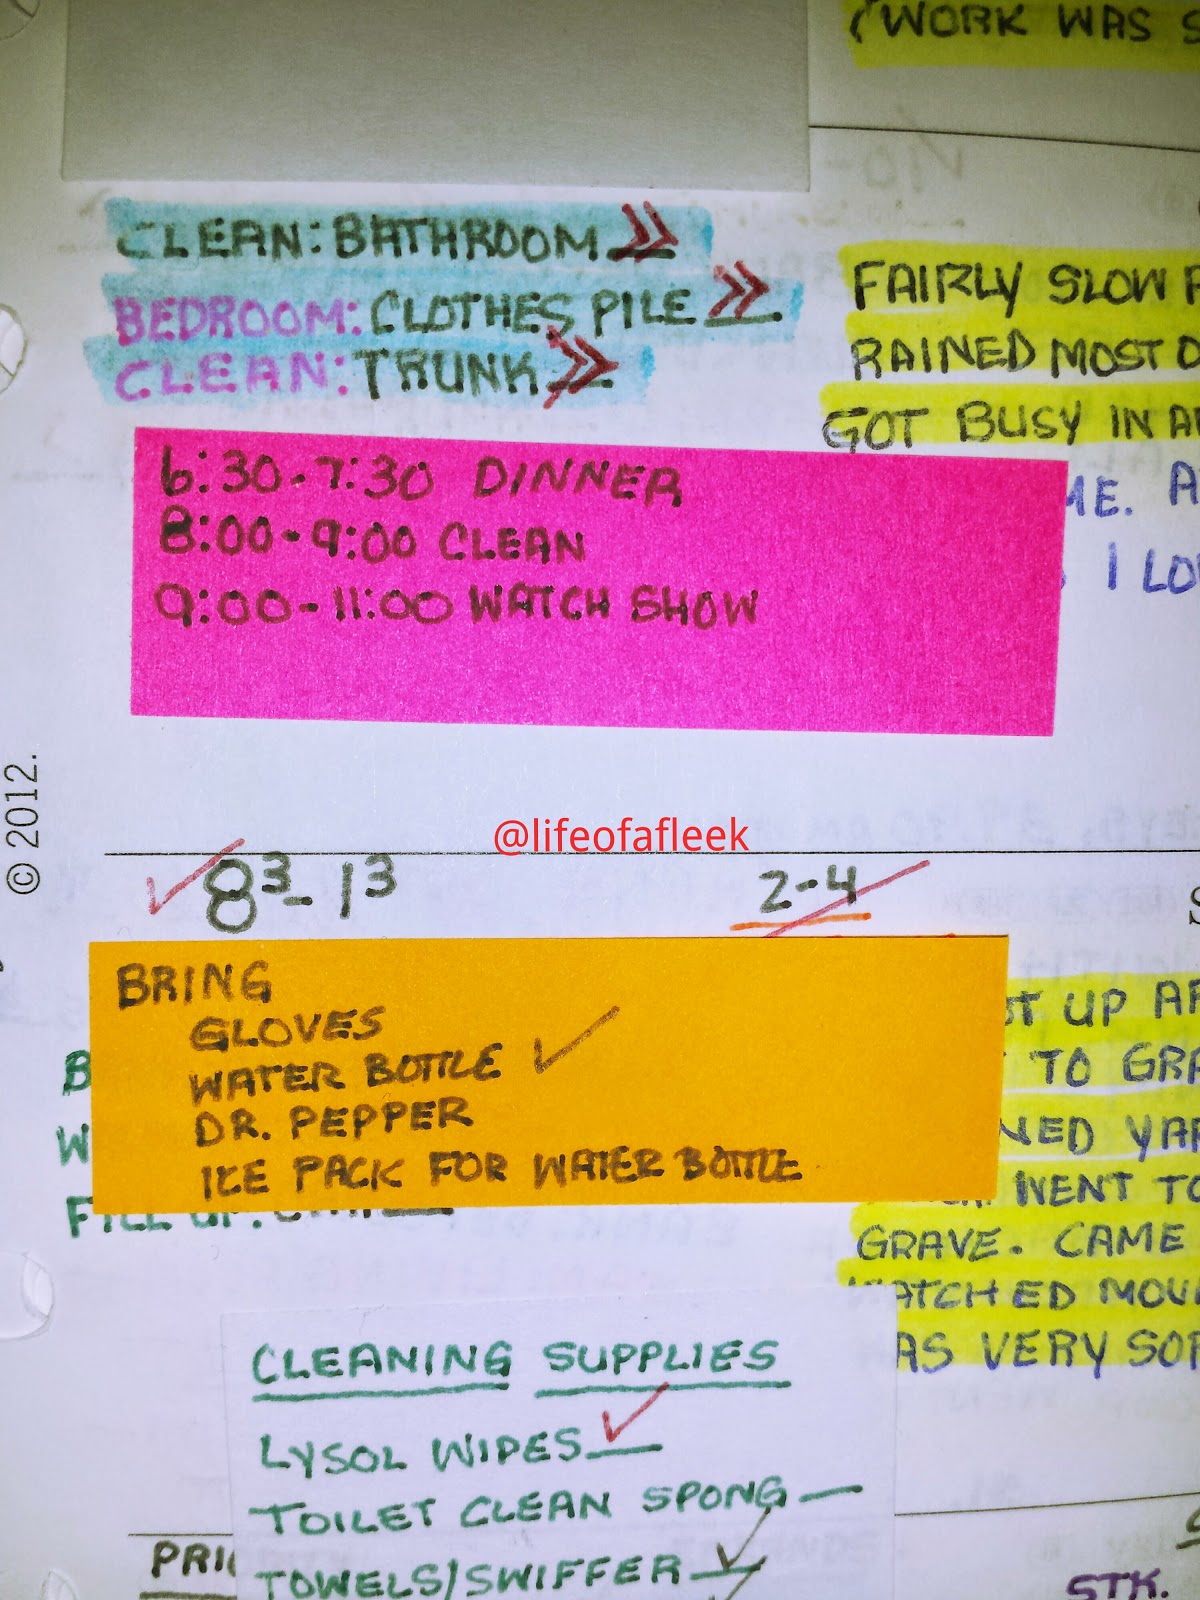 (WORK WAS
CLEAN: BATHROOM »
BEDROOM: CLOTHES PILE »
CLEAN: TRUNK »
FAIRLY SLOW
RAINED MOST
GOT BUSY IN
ME. A
I LO
6:30-7:30 DINNER
8:00-9:00 CLEAN
9:00-11:00 WATCH SHOW
© 2012.
@lifeofafleek
8³-1³
2-4
BRING
GLOVES
WATER BOTTLE ✓
DR. PEPPER
ICE PACK FOR WATER BOTTLE
B
W
FILL UP:
UP
TO GRA
NED YAR
WENT TO
GRAVE. CAME
WATCHED MOV
AS VERY SO
CLEANING SUPPLIES
LYSOL WIPES ✓
TOILET CLEAN SPONG
TOWELS/SWIFFER ✓
PRI
STK.